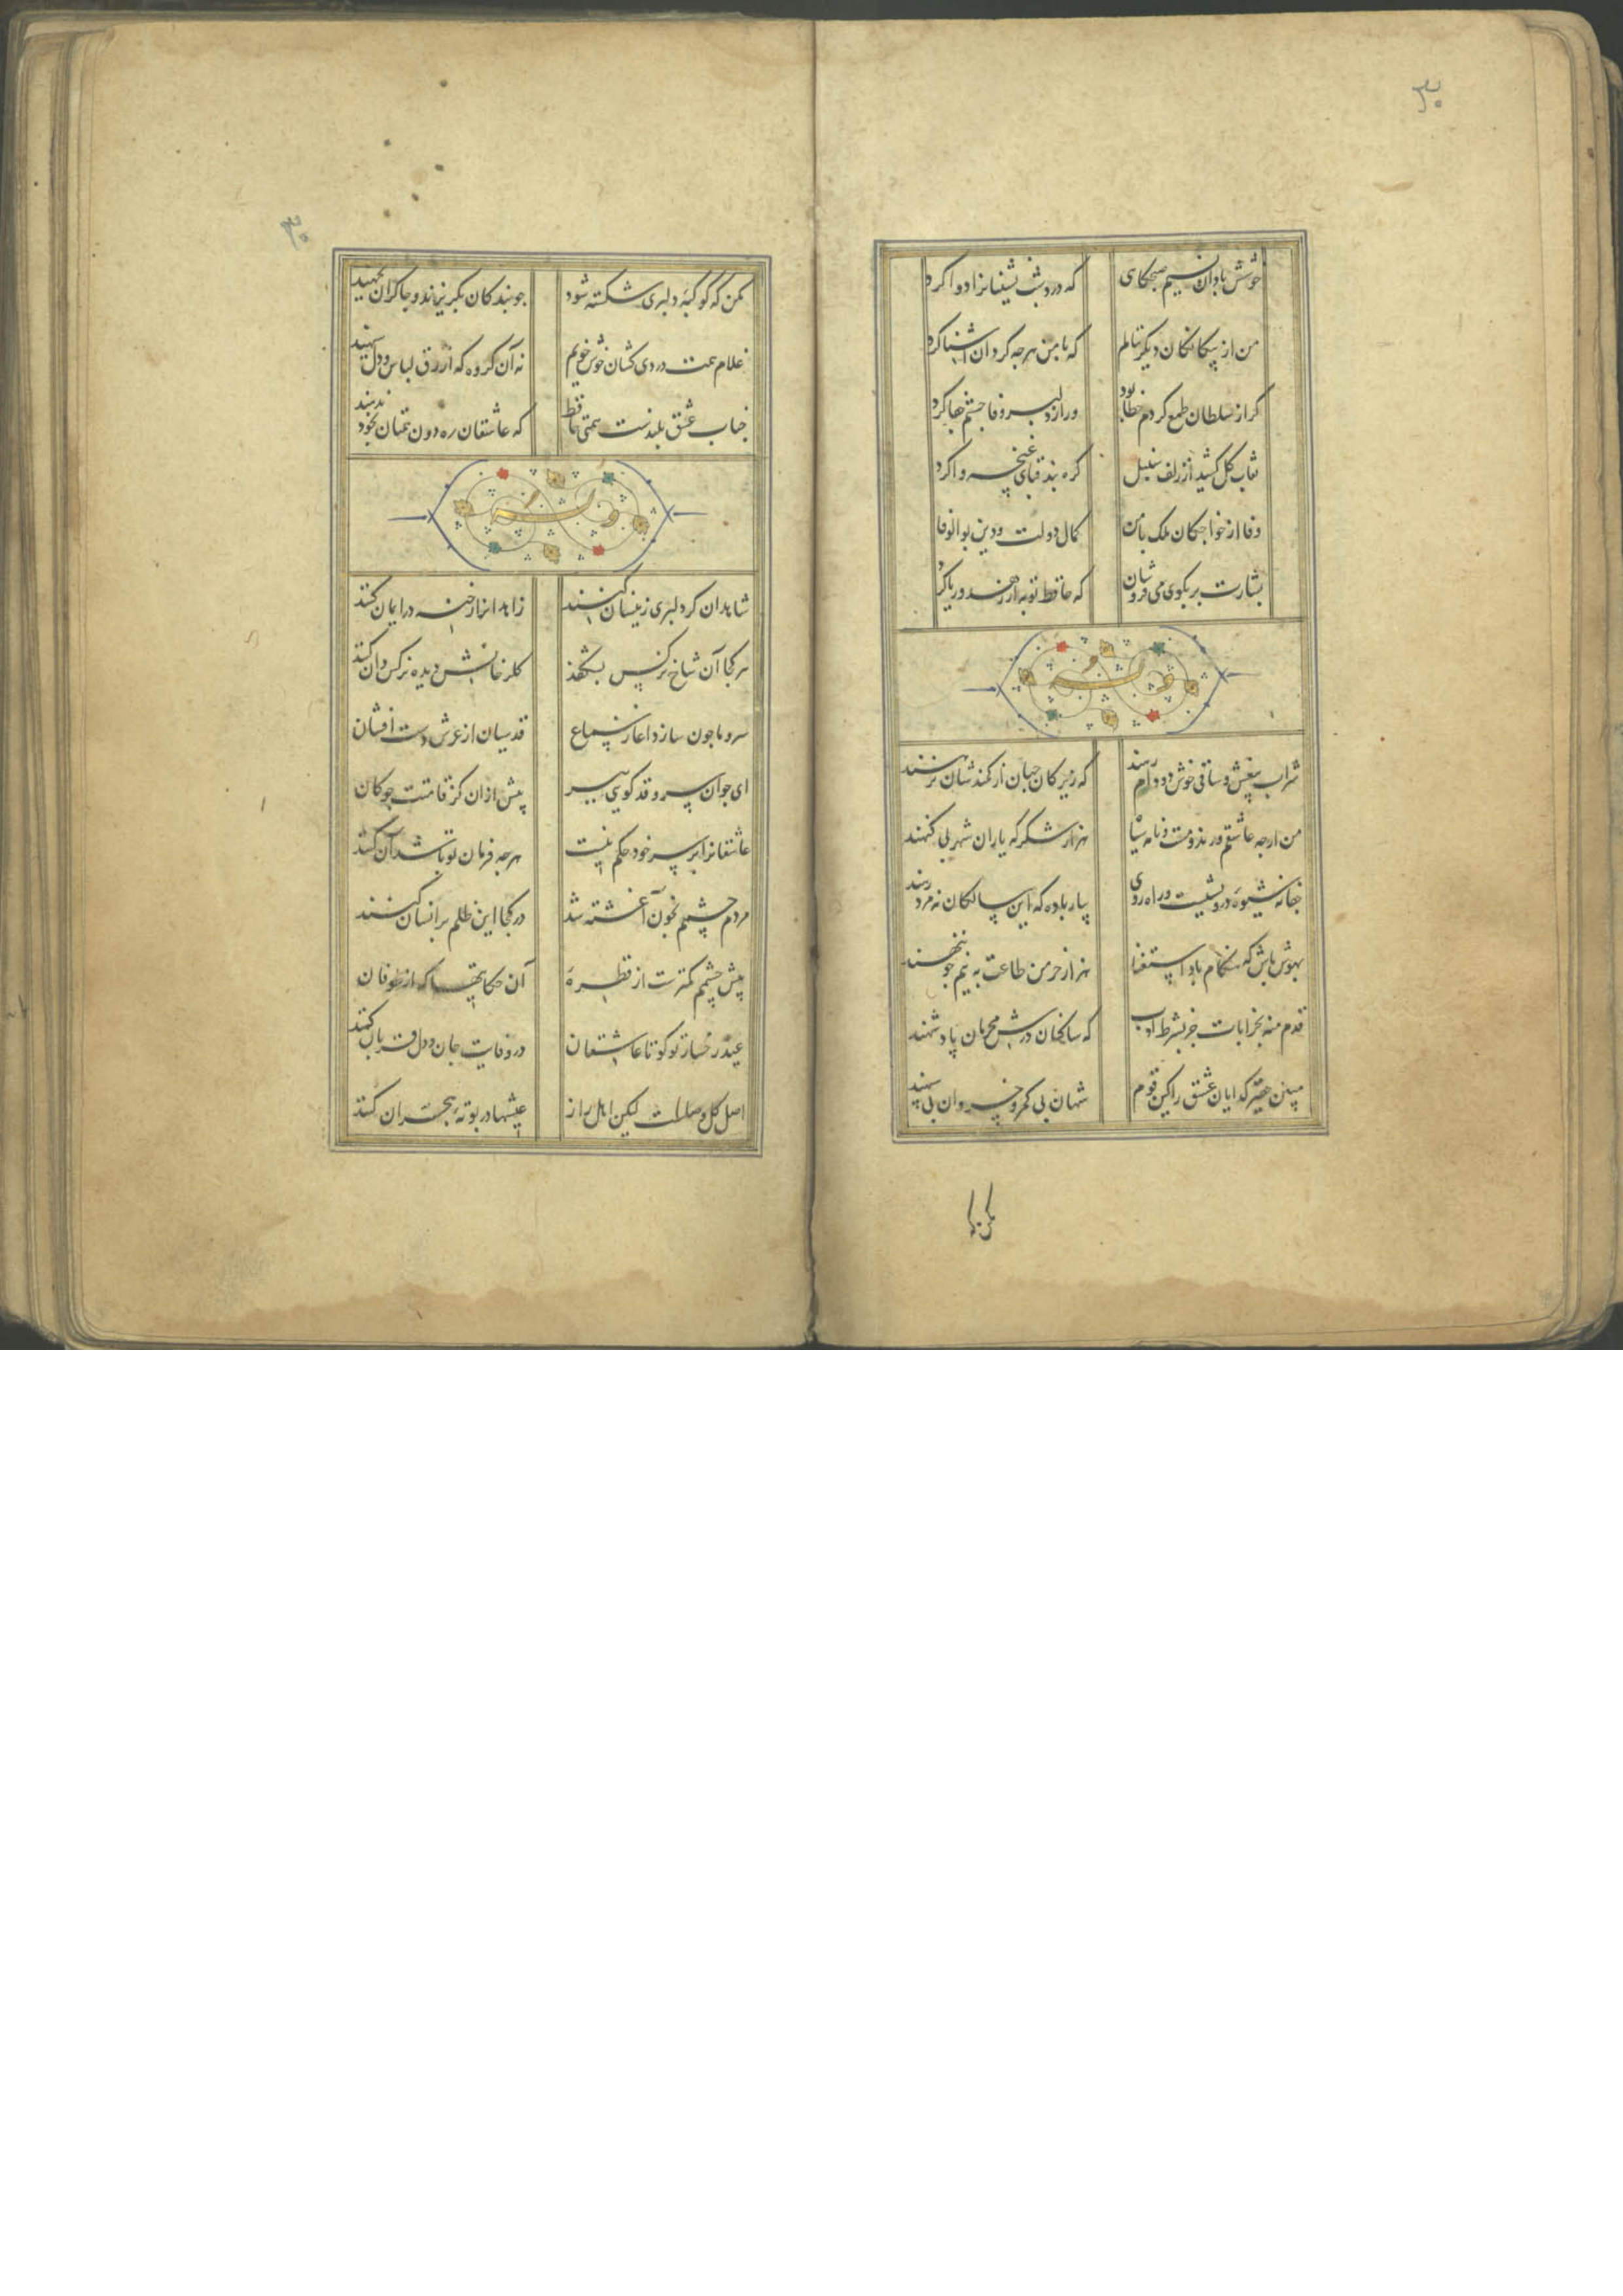 ۳۰
خوش باد آن نسیم صبحکاهی که درد شب نشینانرا دوا کرد
من از بیکانکان دیکر ننالم که با من هرجه کرد آن آشنا کرد
کر از سلطان طمع کردم خطا بود ور از دلبر وفا جستم جفا کرد
نقاب کل کشید از زلف سنبل کره بند قبای غنچه وا کرد
وفا از خواجکان ملک با من کمال دولت و دین بوالوفا کرد
بشارت بر بکوی می فروشان که حافظ توبه از زهد و ریا کرد
وله
شراب بیغش و ساقی خوش دو دام رهند که زیرکان جهان از کمندشان نرهند
من ارجه عاشقم و رند و مست و نامه سیاه هزار شکر که یاران شهر بی کنهند
جفا نه شیوه درویشیست و راه روی بیار باده که این سالکان نه مرد رهند
بهوش باش که هنکام باد استغنا هزار خرمن طاعت به نیم جو ننهند
قدم منه بخرابات جز بشرط ادب که ساکنان درش محرمان پادشهند
مبین حقیر کدایان عشق را کین قوم شهان بی کمر و خسروان بی کلهند
۳۰
مکن که کوکبه دلبری شکسته شود جو بندکان بکریزند و جاکران بجهند
غلام همت دردی کشان خوش خویم نه آن کروه که ازرق لباس و دل سیهند
جناب عشق بلندست همتی حافظ که عاشقان ره دون همتان بخود ندهند
وله
شاهدان کر دلبری زینسان کنند زاهدانرا رخنه در ایمان کنند
هر کجا آن شاخ نرکس بشکفد کلرخانش دیده نرکس دان کنند
سرو ما جون سازد آغاز سماع قدسیان از عرش دست افشان کنند
ای جوان سرو قد کویی ببر پیش از آن کز قامتت جوکان کنند
عاشقانرا بر سر خود حکم نیست هرجه فرمان تو باشد آن کنند
مردم چشمم بخون آغشته شد در کجا این ظلم بر انسان کنند
پیش چشمم کمترست از قطره آن حکایتها که از طوفان کنند
عید رخسار تو کو تا عاشقان در وفایت جان و دل قربان کنند
اصل کل وصلست لیکن اهل راز عیشها در بوته هجران کنند